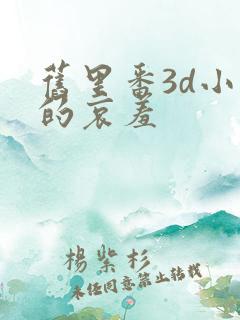 舊里番3d小
的哀羞
楊紫杉
未经同意禁止转载